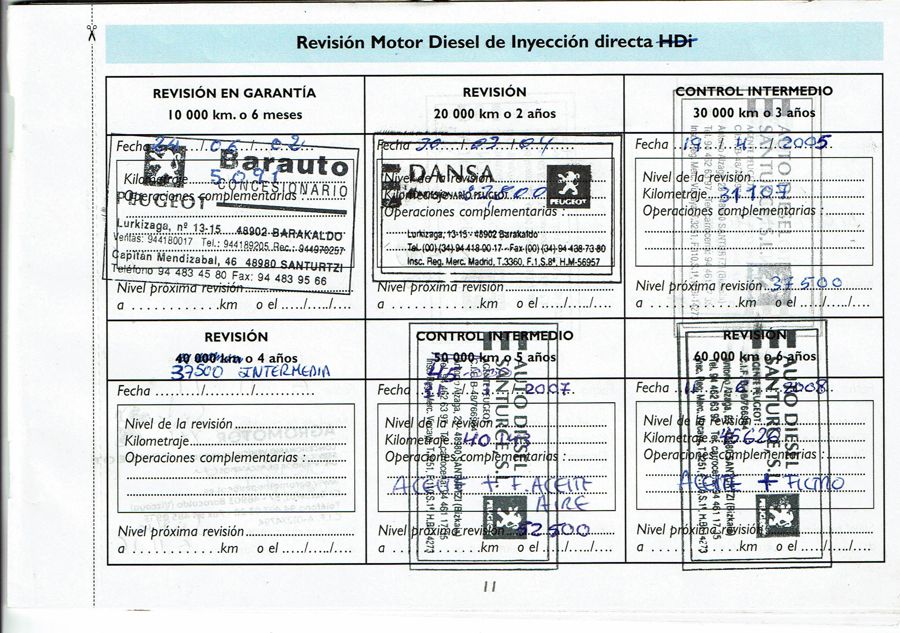 Revisión Motor Diesel de Inyección directa HDi
REVISIÓN EN GARANTÍA
10 000 km. o 6 meses
Fecha 24 / 06 / 02
Barauto
CONCESIONARIO
PEUGEOT
Kilometraje 5.091
Operaciones complementarias :
Lurkizaga, nº 13-15 48902 BARAKALDO
Ventas: 944180017 Tel.: 944189205 Rec.: 944970257
Capitán Mendizabal, 46 48980 SANTURTZI
Teléfono 94 483 45 80 Fax: 94 483 95 66
Nivel próxima revisión
a ............km o el ...../...../.....
REVISIÓN
20 000 km o 2 años
Fecha 30 / 03 / 04
DANSA
CONCESIONARIO PEUGEOT
PEUGEOT
Nivel de la revisión
Kilometraje
Operaciones complementarias :
Lurkizaga, 13-15 - 48902 Barakaldo
Tel. (00) (34) 94 418 00 17 - Fax (00) (34) 94 438 73 80
Insc. Reg. Merc. Madrid, T.3360, F.1.S.8ª, H.M-56957
Nivel próxima revisión
a ............km o el ...../...../.....
CONTROL INTERMEDIO
30 000 km o 3 años
Fecha 19 / 4 / 2005
Nivel de la revisión
Kilometraje 31107
Operaciones complementarias :
AUTO DIESEL
SANTURCE, S.L.
Nivel próxima revisión 37500
a ............km o el ...../...../.....
REVISIÓN
40 000 km o 4 años
37500 INTERMEDIA
Fecha ...../...../.....
Nivel de la revisión
Kilometraje
Operaciones complementarias :
Nivel próxima revisión
a ............km o el ...../...../.....
CONTROL INTERMEDIO
50 000 km o 5 años
Fecha 2007
Nivel de la revisión
Kilometraje 40143
Operaciones complementarias :
ACEITE + F. ACEITE
AIRE
AUTO DIESEL
SANTURCE, S.L.
AGENTE PEUGEOT
PEUGEOT
Nivel próxima revisión 52500
a ............km o el ...../...../.....
REVISIÓN
60 000 km o 6 años
Fecha 11 6 2008
Nivel de la revisión
Kilometraje 45626
Operaciones complementarias :
ACEITE + FILTRO
AUTO DIESEL
SANTURCE, S.L.
AGENTE PEUGEOT
PEUGEOT
Nivel próxima revisión
a ............km o el ...../...../.....
11